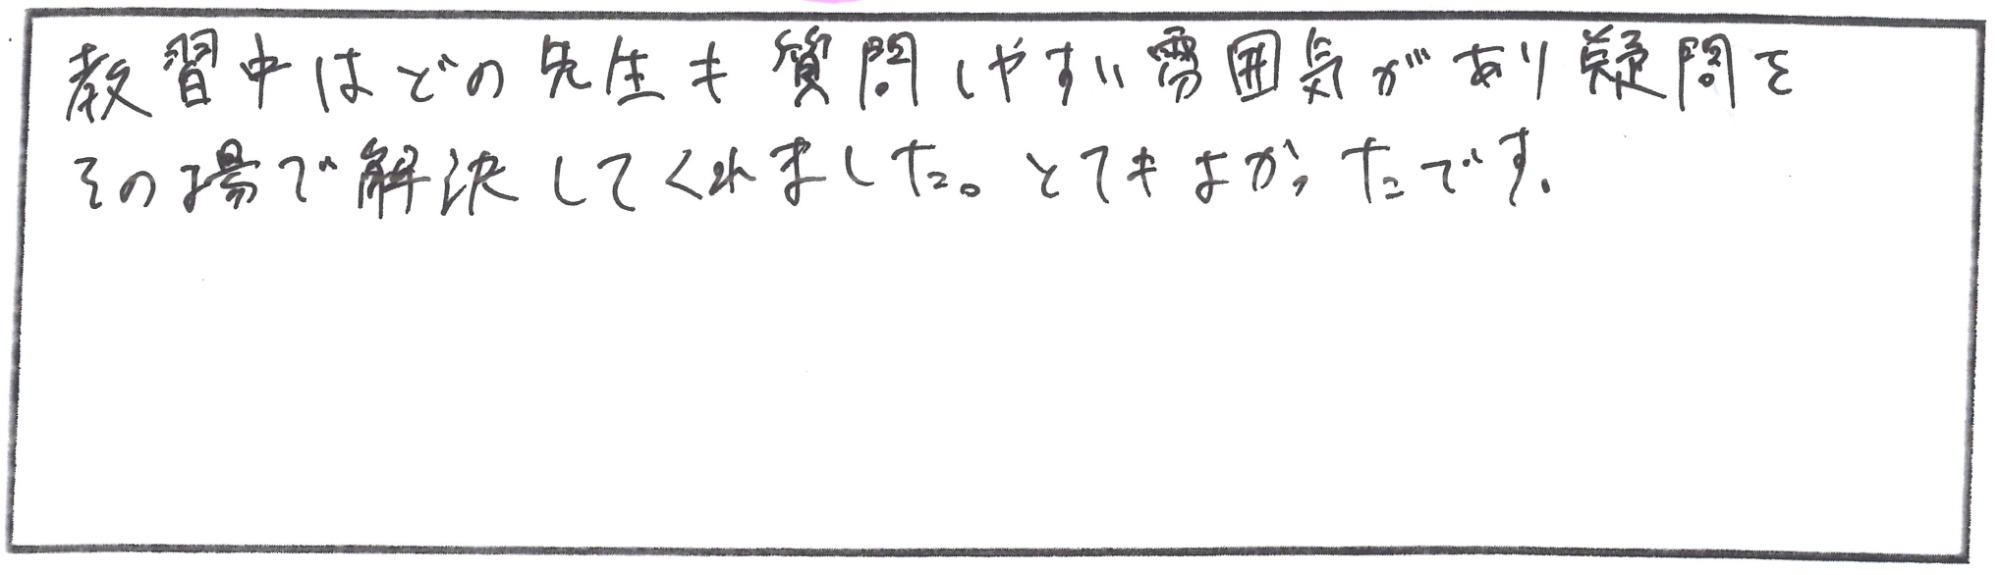 教習中はどの先生も質問しやすい雰囲気があり疑問を
その場で解決してくれました。とてもよかったです.